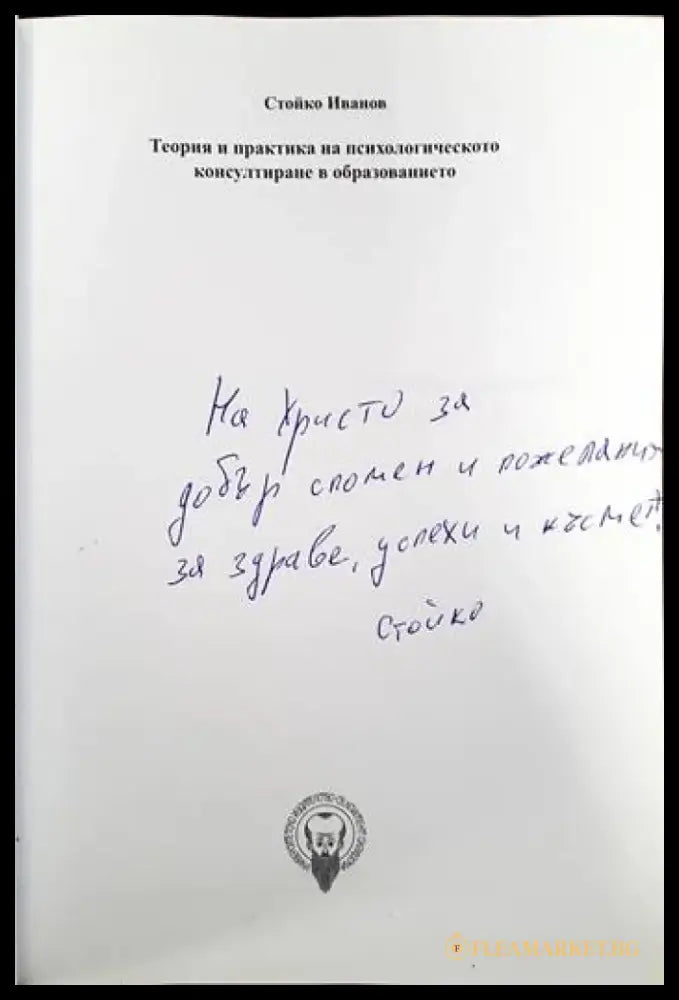 Стойко Иванов
Теория и практика на психологическото
консултиране в образованието
На Христо за
добър спомен и пожелания
за здраве, успехи и късмет!
Стойко
FLEAMARKET.BG